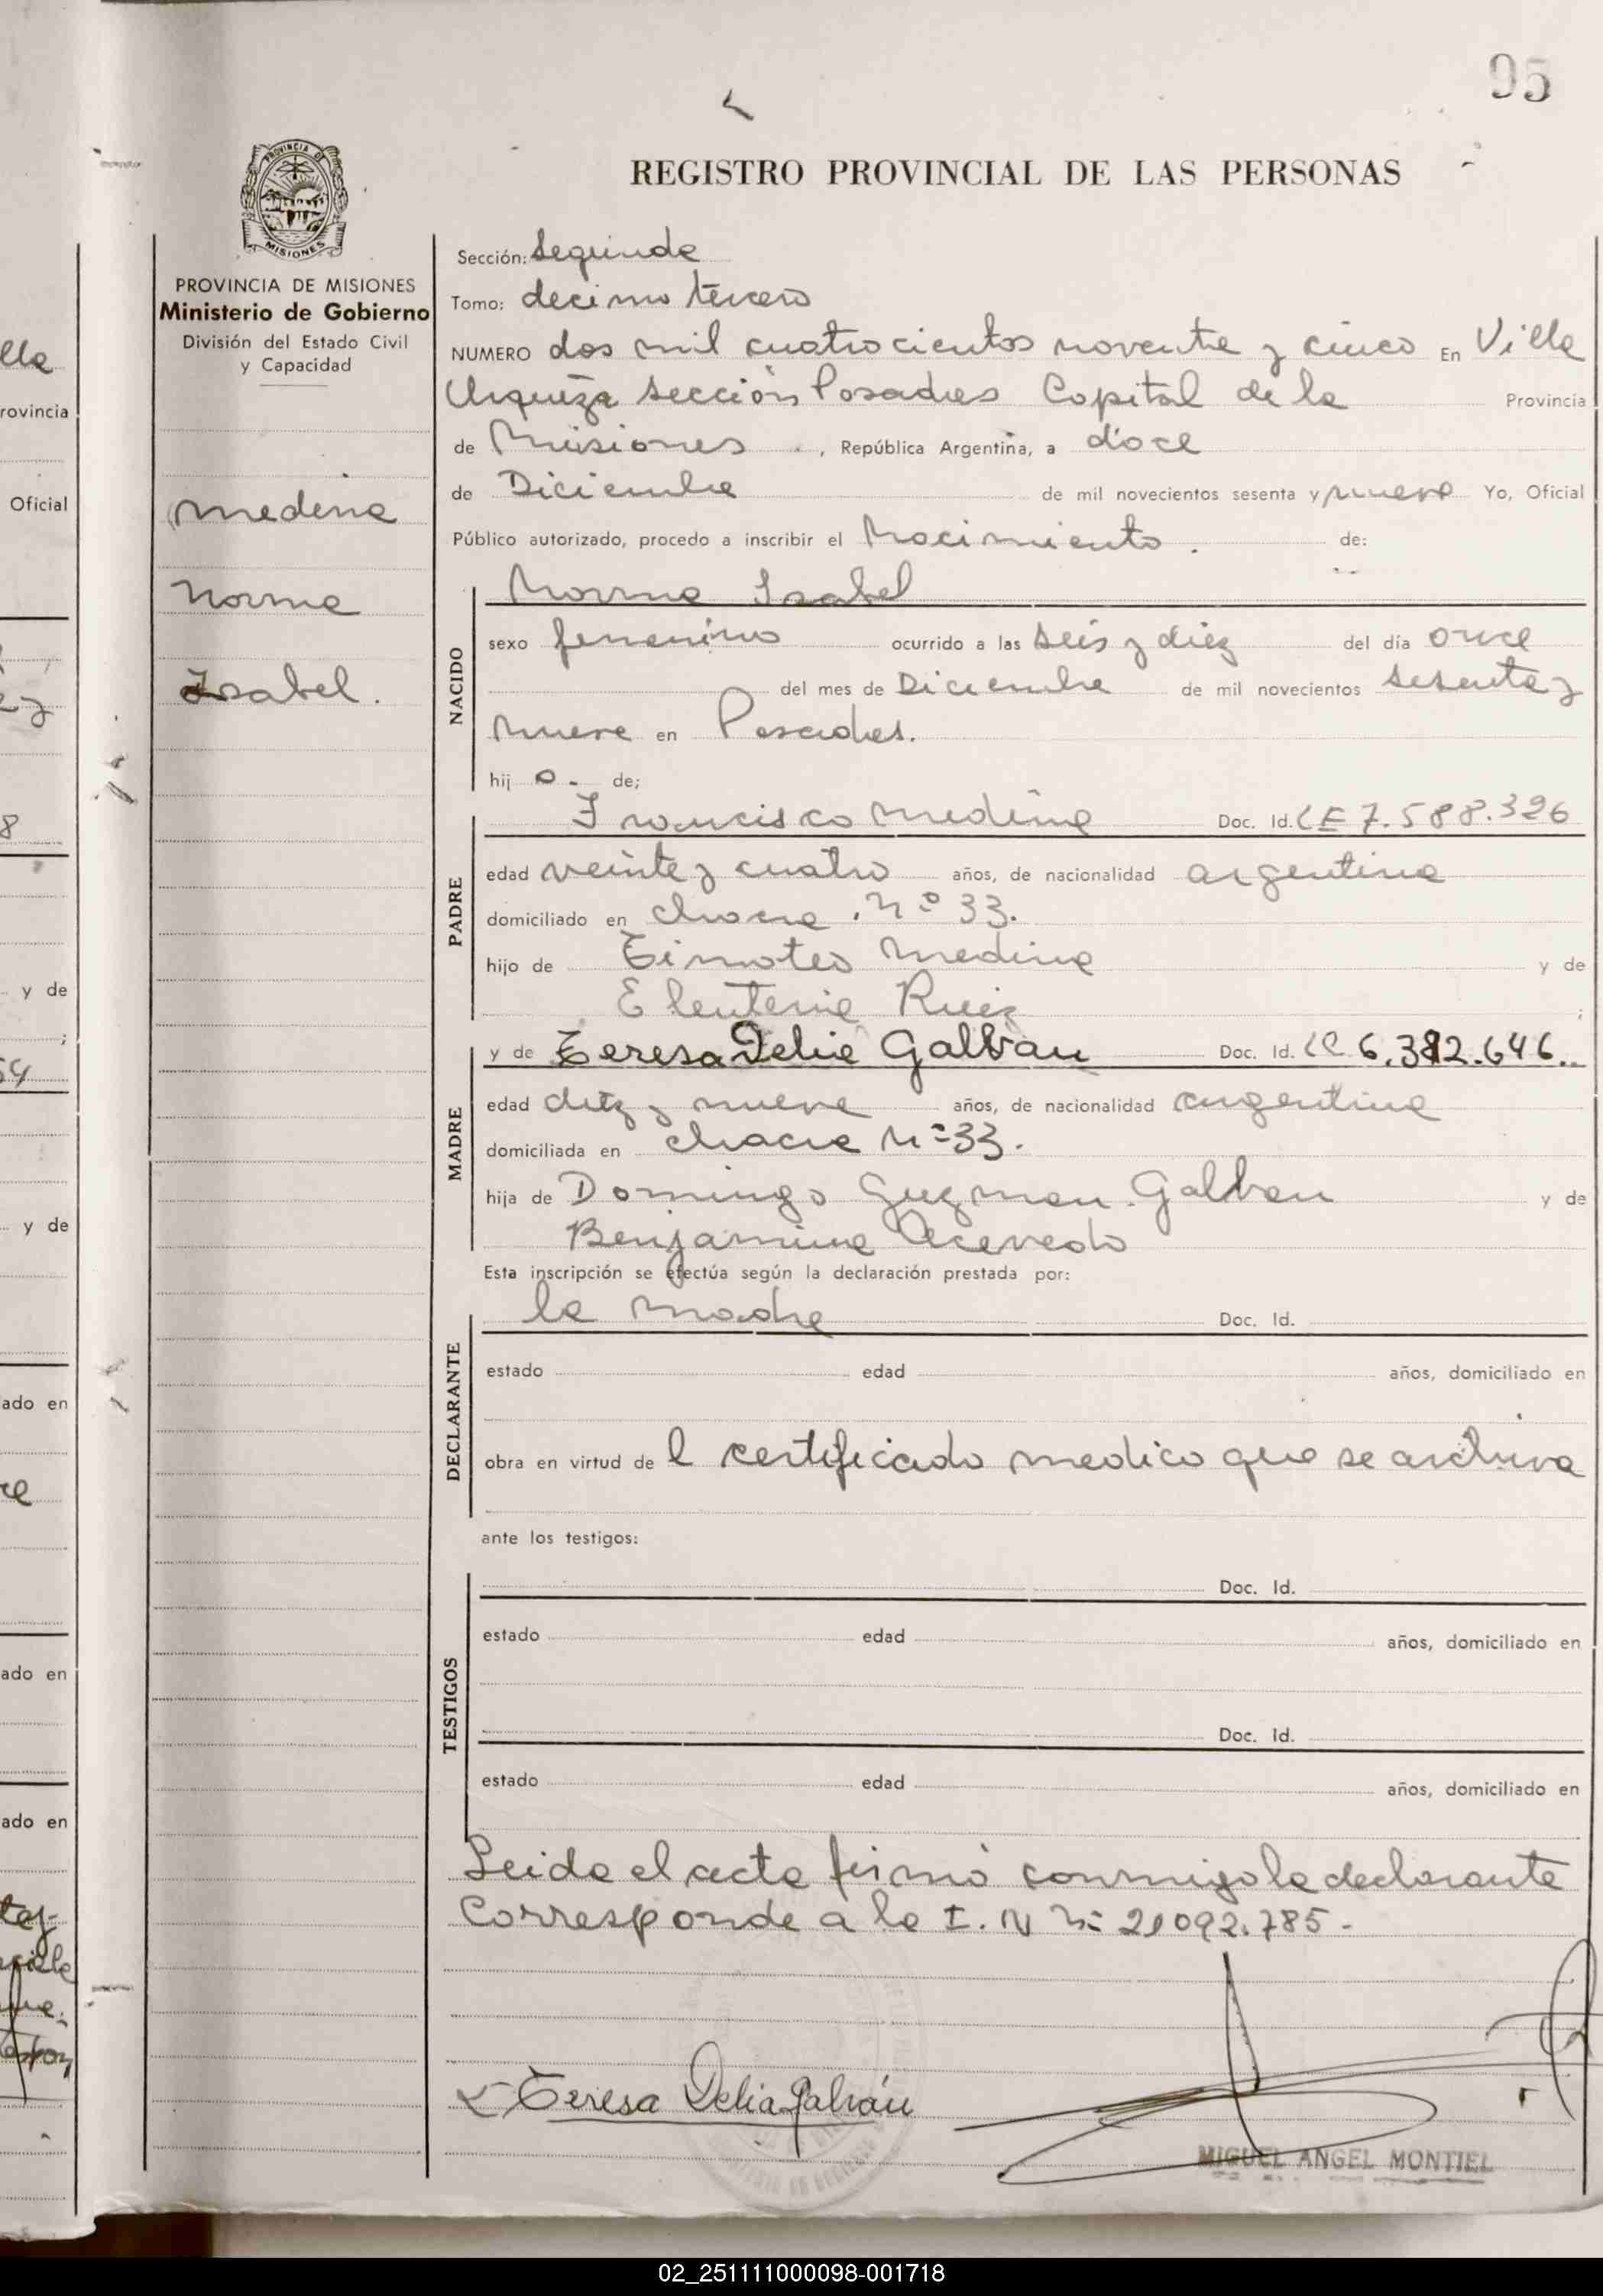 95
REGISTRO PROVINCIAL DE LAS PERSONAS
PROVINCIA DE
MISIONES
PROVINCIA DE MISIONES
Ministerio de Gobierno
División del Estado Civil
y Capacidad
Medina
Norma
Isabel.
Sección: Segunda
Tomo: decimo tercero
NUMERO dos mil cuatrocientos noventa y cinco En Villa
Urquiza Sección Posadas Capital de la Provincia
de Misiones, República Argentina, a doce
de Diciembre de mil novecientos sesenta y nueve Yo, Oficial
Público autorizado, procedo a inscribir el Nacimiento. de:
NACIDO
Norma Isabel
sexo femenino ocurrido a las seis y diez del día once
del mes de Diciembre de mil novecientos sesenta y
nueve en Posadas.
hij a. de;
PADRE
Francisco Medina Doc. Id. CE 7.588.326
edad veinte y cuatro años, de nacionalidad argentina
domiciliado en chacra Nº 33.
hijo de Timoteo Medina y de
Eleuteria Ruiz ;
MADRE
y de Teresa Delia Galván Doc. Id. LC 6.382.646.
edad diez y nueve años, de nacionalidad argentina
domiciliada en chacra Nº 33.
hija de Domingo Guzman Galvan y de
Benjamina Acevedo
Esta inscripción se efectúa según la declaración prestada por:
DECLARANTE
la madre Doc. Id.
estado edad años, domiciliado en
obra en virtud de l certificado medico que se archiva
ante los testigos:
TESTIGOS
Doc. Id.
estado edad años, domiciliado en
Doc. Id.
estado edad años, domiciliado en
Leida el acta firmó conmigo la declarante
Corresponde a la I. N Nº 21092.785.
Teresa Delia Galván
MIGUEL ANGEL MONTIEL
lla
rovincia
Oficial
y de
;
y de
ado en
ado en
ado en
02_251111000098-001718